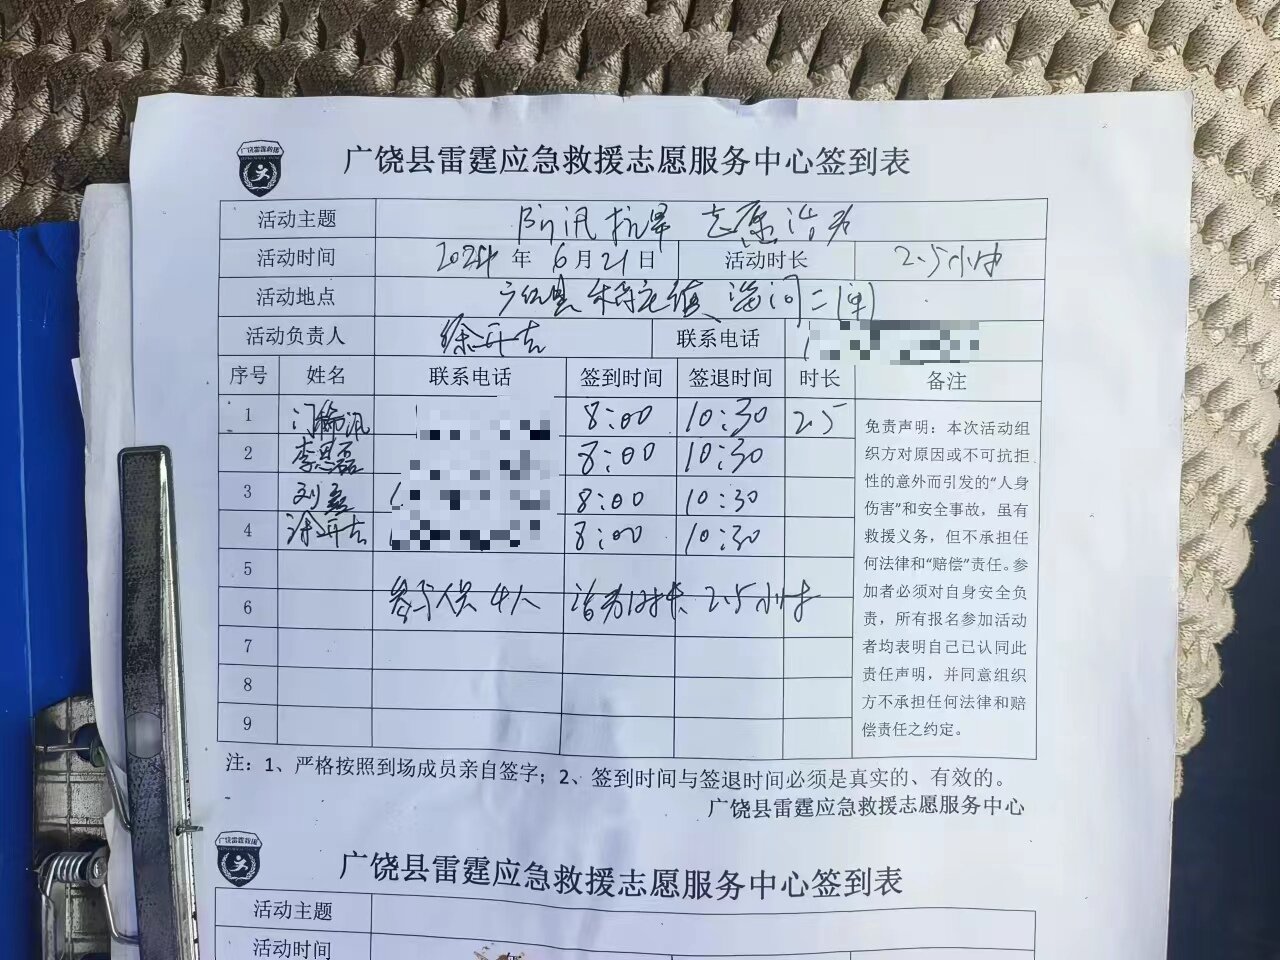 广饶雷霆救援
广饶县雷霆应急救援志愿服务中心签到表
活动主题 防汛抗旱 志愿活动
活动时间 2024年 6月21日 活动时长 2.5小时
活动地点 广饶县
活动负责人 徐开古 联系电话
序号 姓名 联系电话 签到时间 签退时间 时长 备注
1 8:00 10:30 2.5
2 李思磊 8:00 10:30
3 刘鑫 8:00 10:30
4 徐开古 8:00 10:30
5
6 参与人员 4人 活动时长 2.5小时
7
8
9
免责声明：本次活动组
织方对原因或不可抗拒
性的意外而引发的“人身
伤害”和安全事故，虽有
救援义务，但不承担任
何法律和“赔偿”责任。参
加者必须对自身安全负
责，所有报名参加活动
者均表明自己已认同此
责任声明，并同意组织
方不承担任何法律和赔
偿责任之约定。
注：1、严格按照到场成员亲自签字；2、签到时间与签退时间必须是真实的、有效的。
广饶县雷霆应急救援志愿服务中心
广饶雷霆救援
广饶县雷霆应急救援志愿服务中心签到表
活动主题
活动时间 年